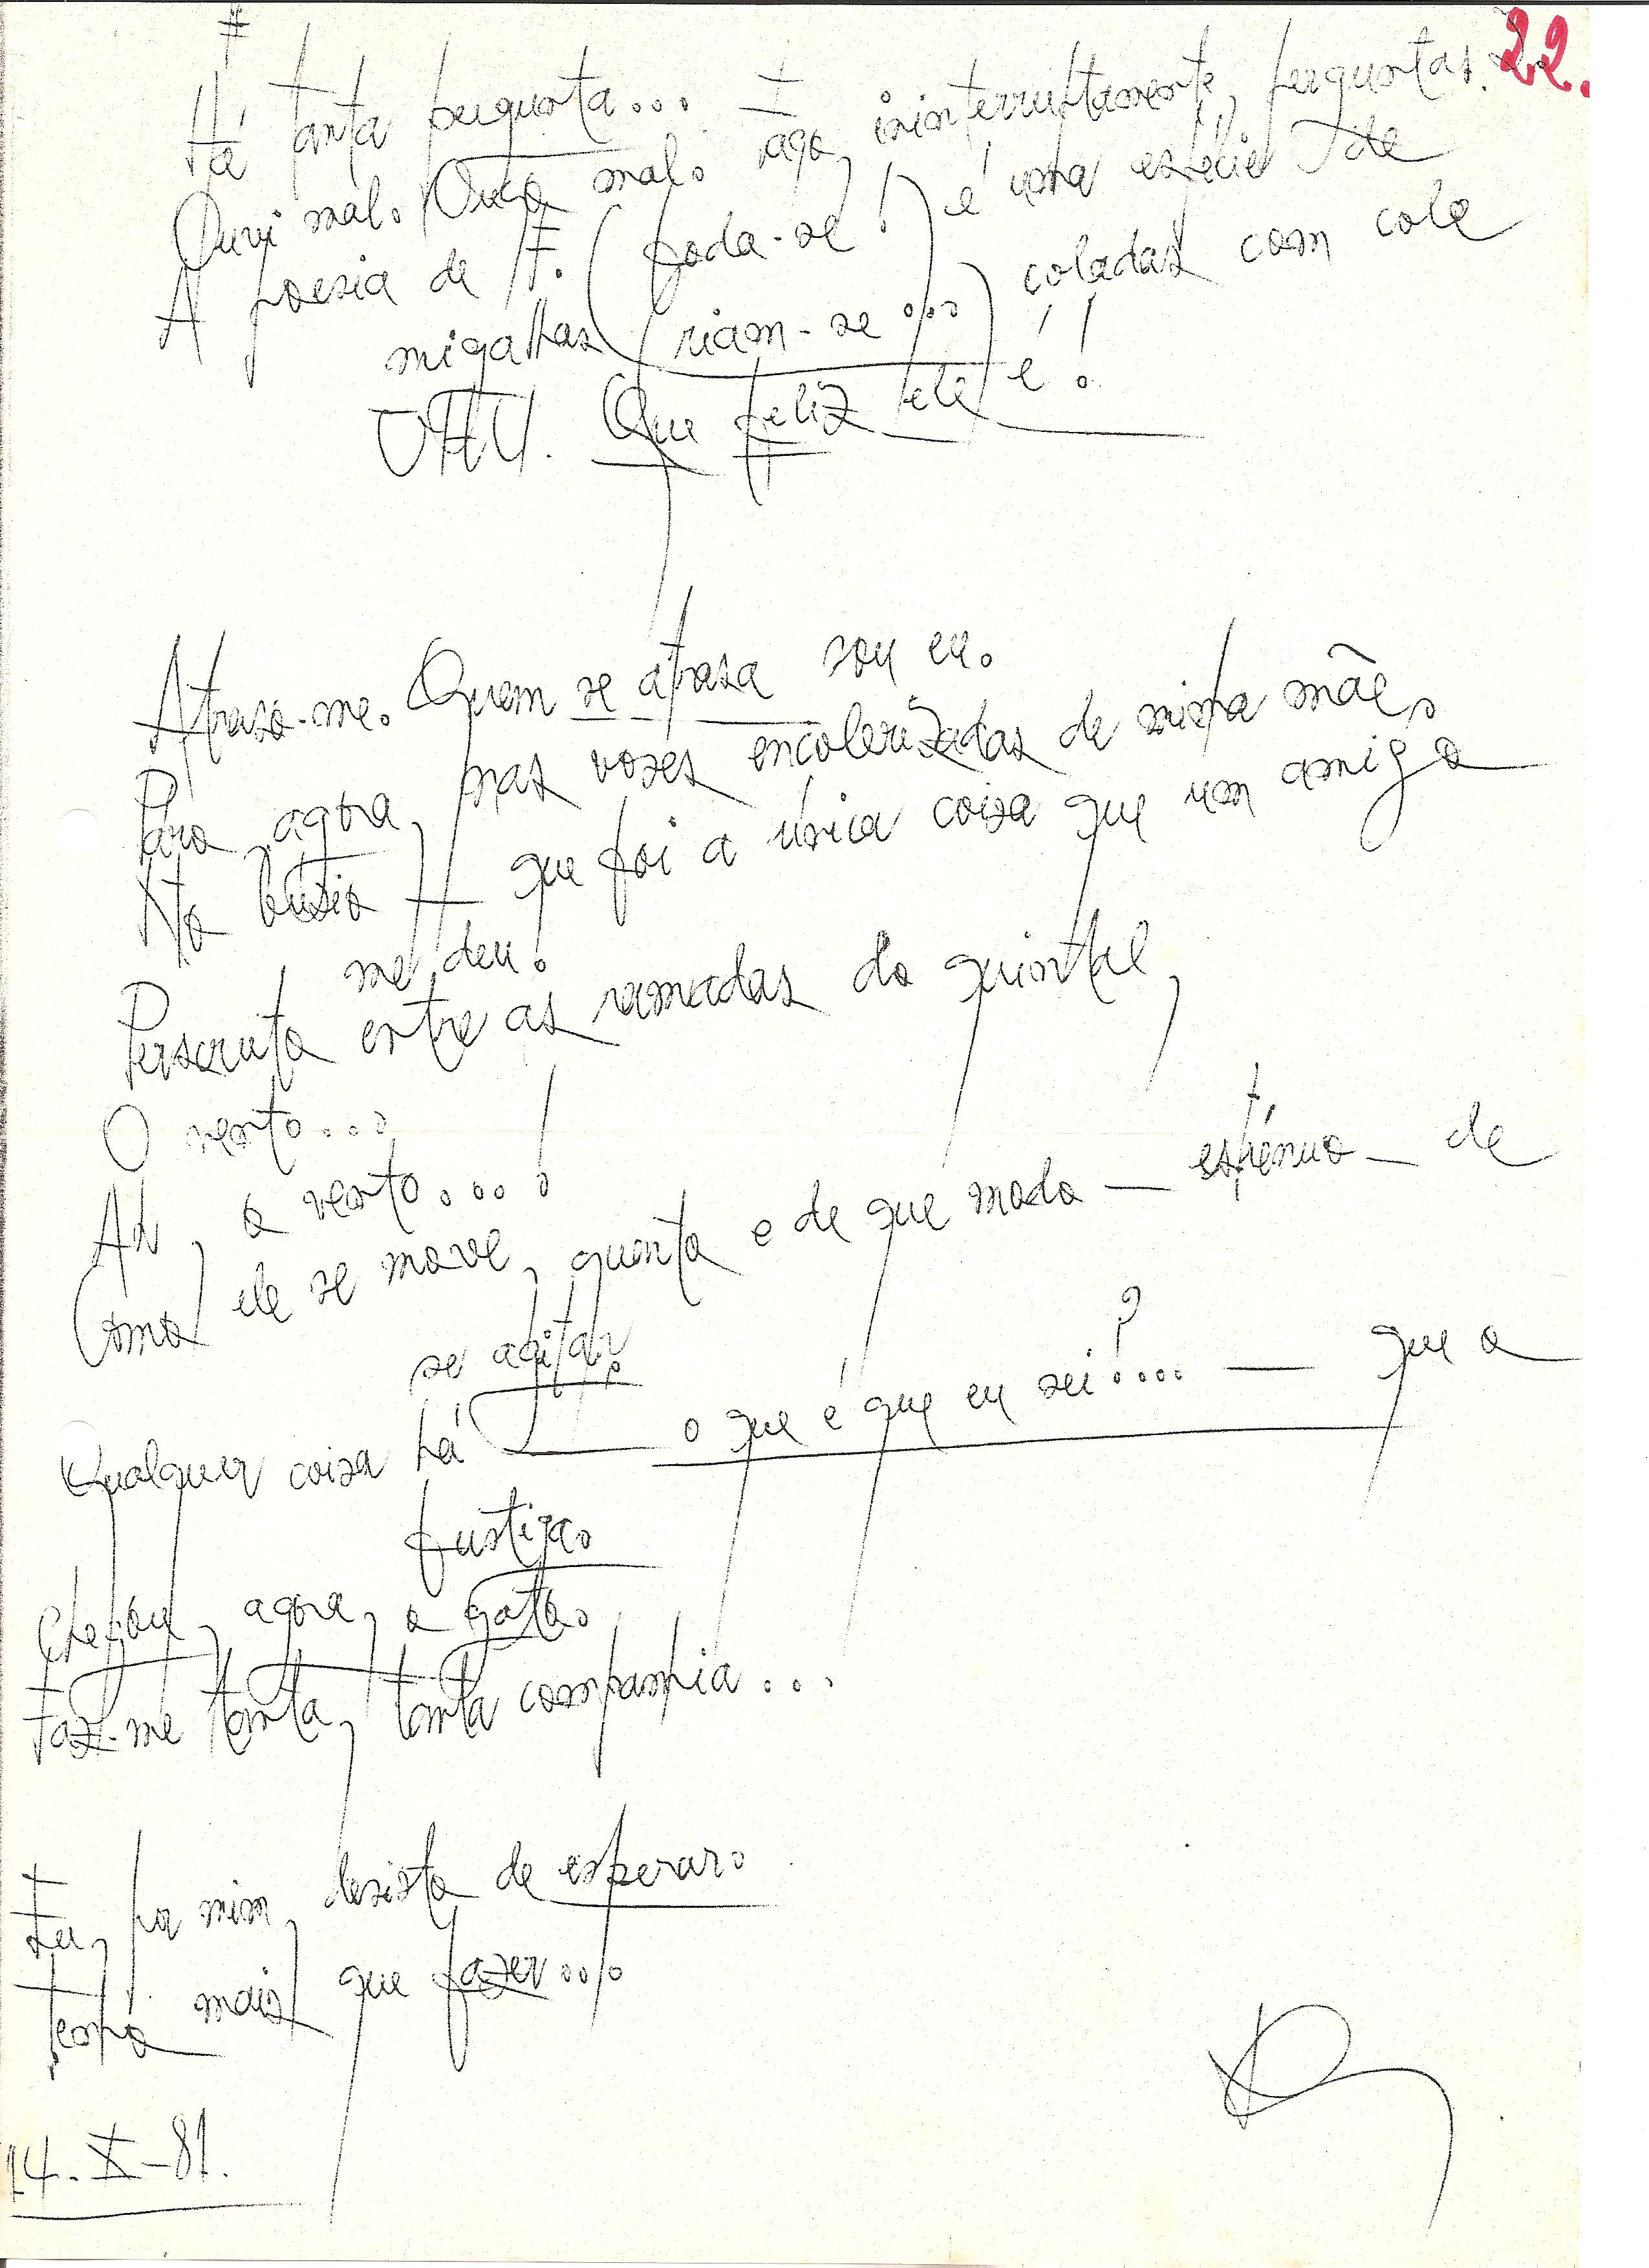 22.
#
Há tanta pergunta... E faço, ininterruptamente, perguntas.
Ouvi mal. Ouço mal.
A poesia de F. (foda-se!) é uma espécie de
migalhas (riam-se...) coladas com cole
UHU. Que feliz ele é!
Atraso-me. Quem se atrasa sou eu.
Paro, agora, nas vozes encolerizadas de minha mãe,
No búzio — que foi a única coisa que um amigo
me deu.
Perscruto entre as ramadas do quintal,
O vento...
Ah, o vento...!
Como ele se move, quanto e de que modo — estrénuo — de
se agitar.
Qualquer coisa há — o que é que eu sei?... — que o
fustiga.
Chegou, agora, o gato.
Faz-me tanta, tanta companhia...
Eu, por mim, desisto de esperar.
Tenho mais que fazer...
14-X-81.